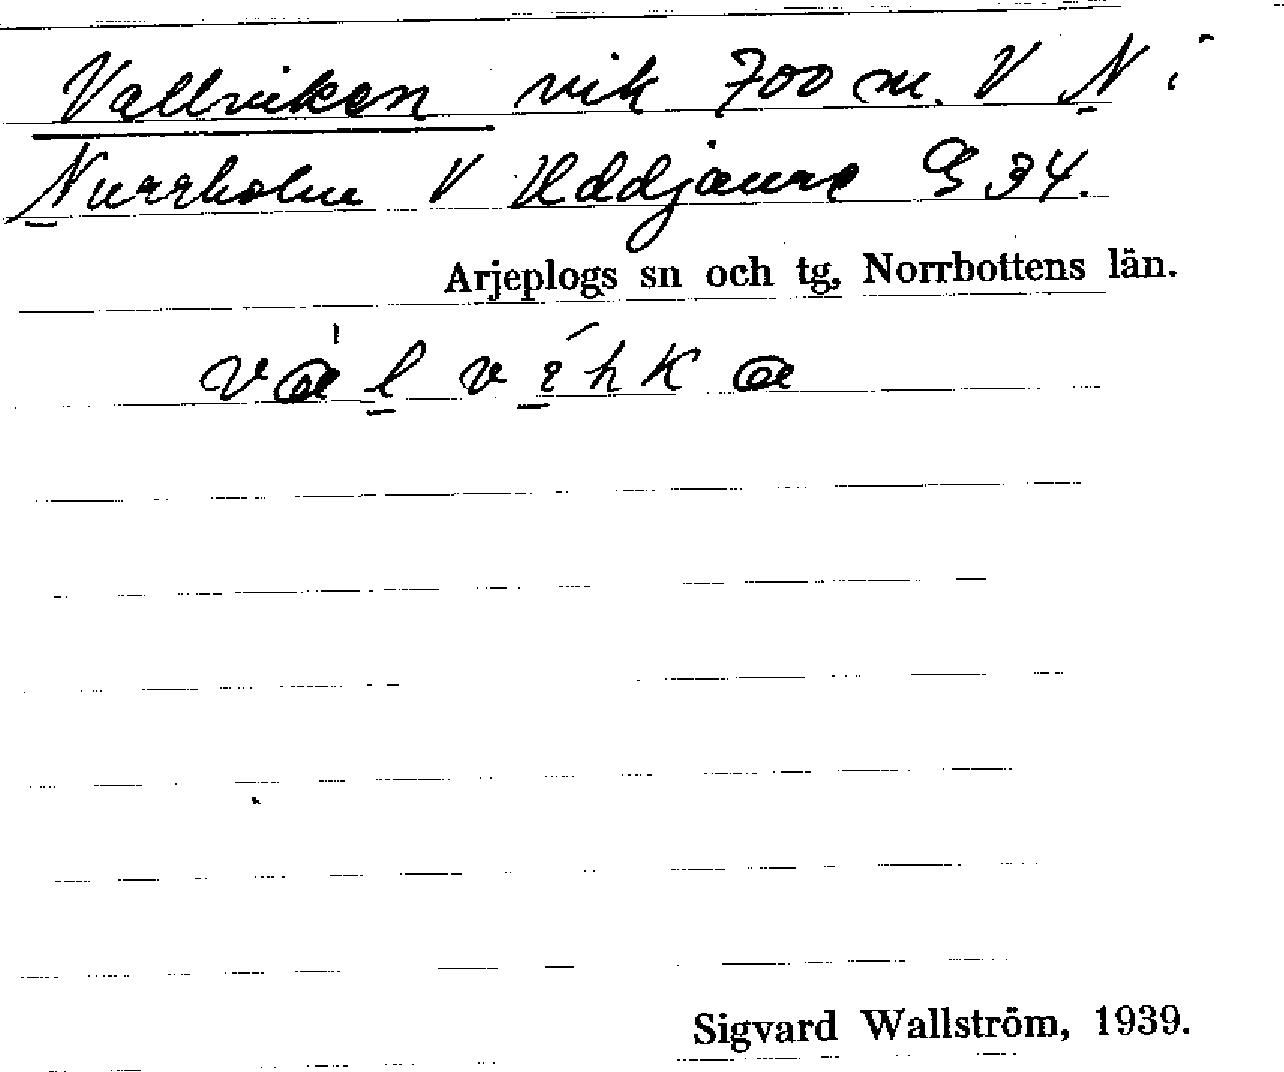 Vallviken vik 700 m. V N i
Nurrholm V Uddjaure G 34.
Arjeplogs sn och tg, Norrbottens län.
Sigvard Wallström, 1939.